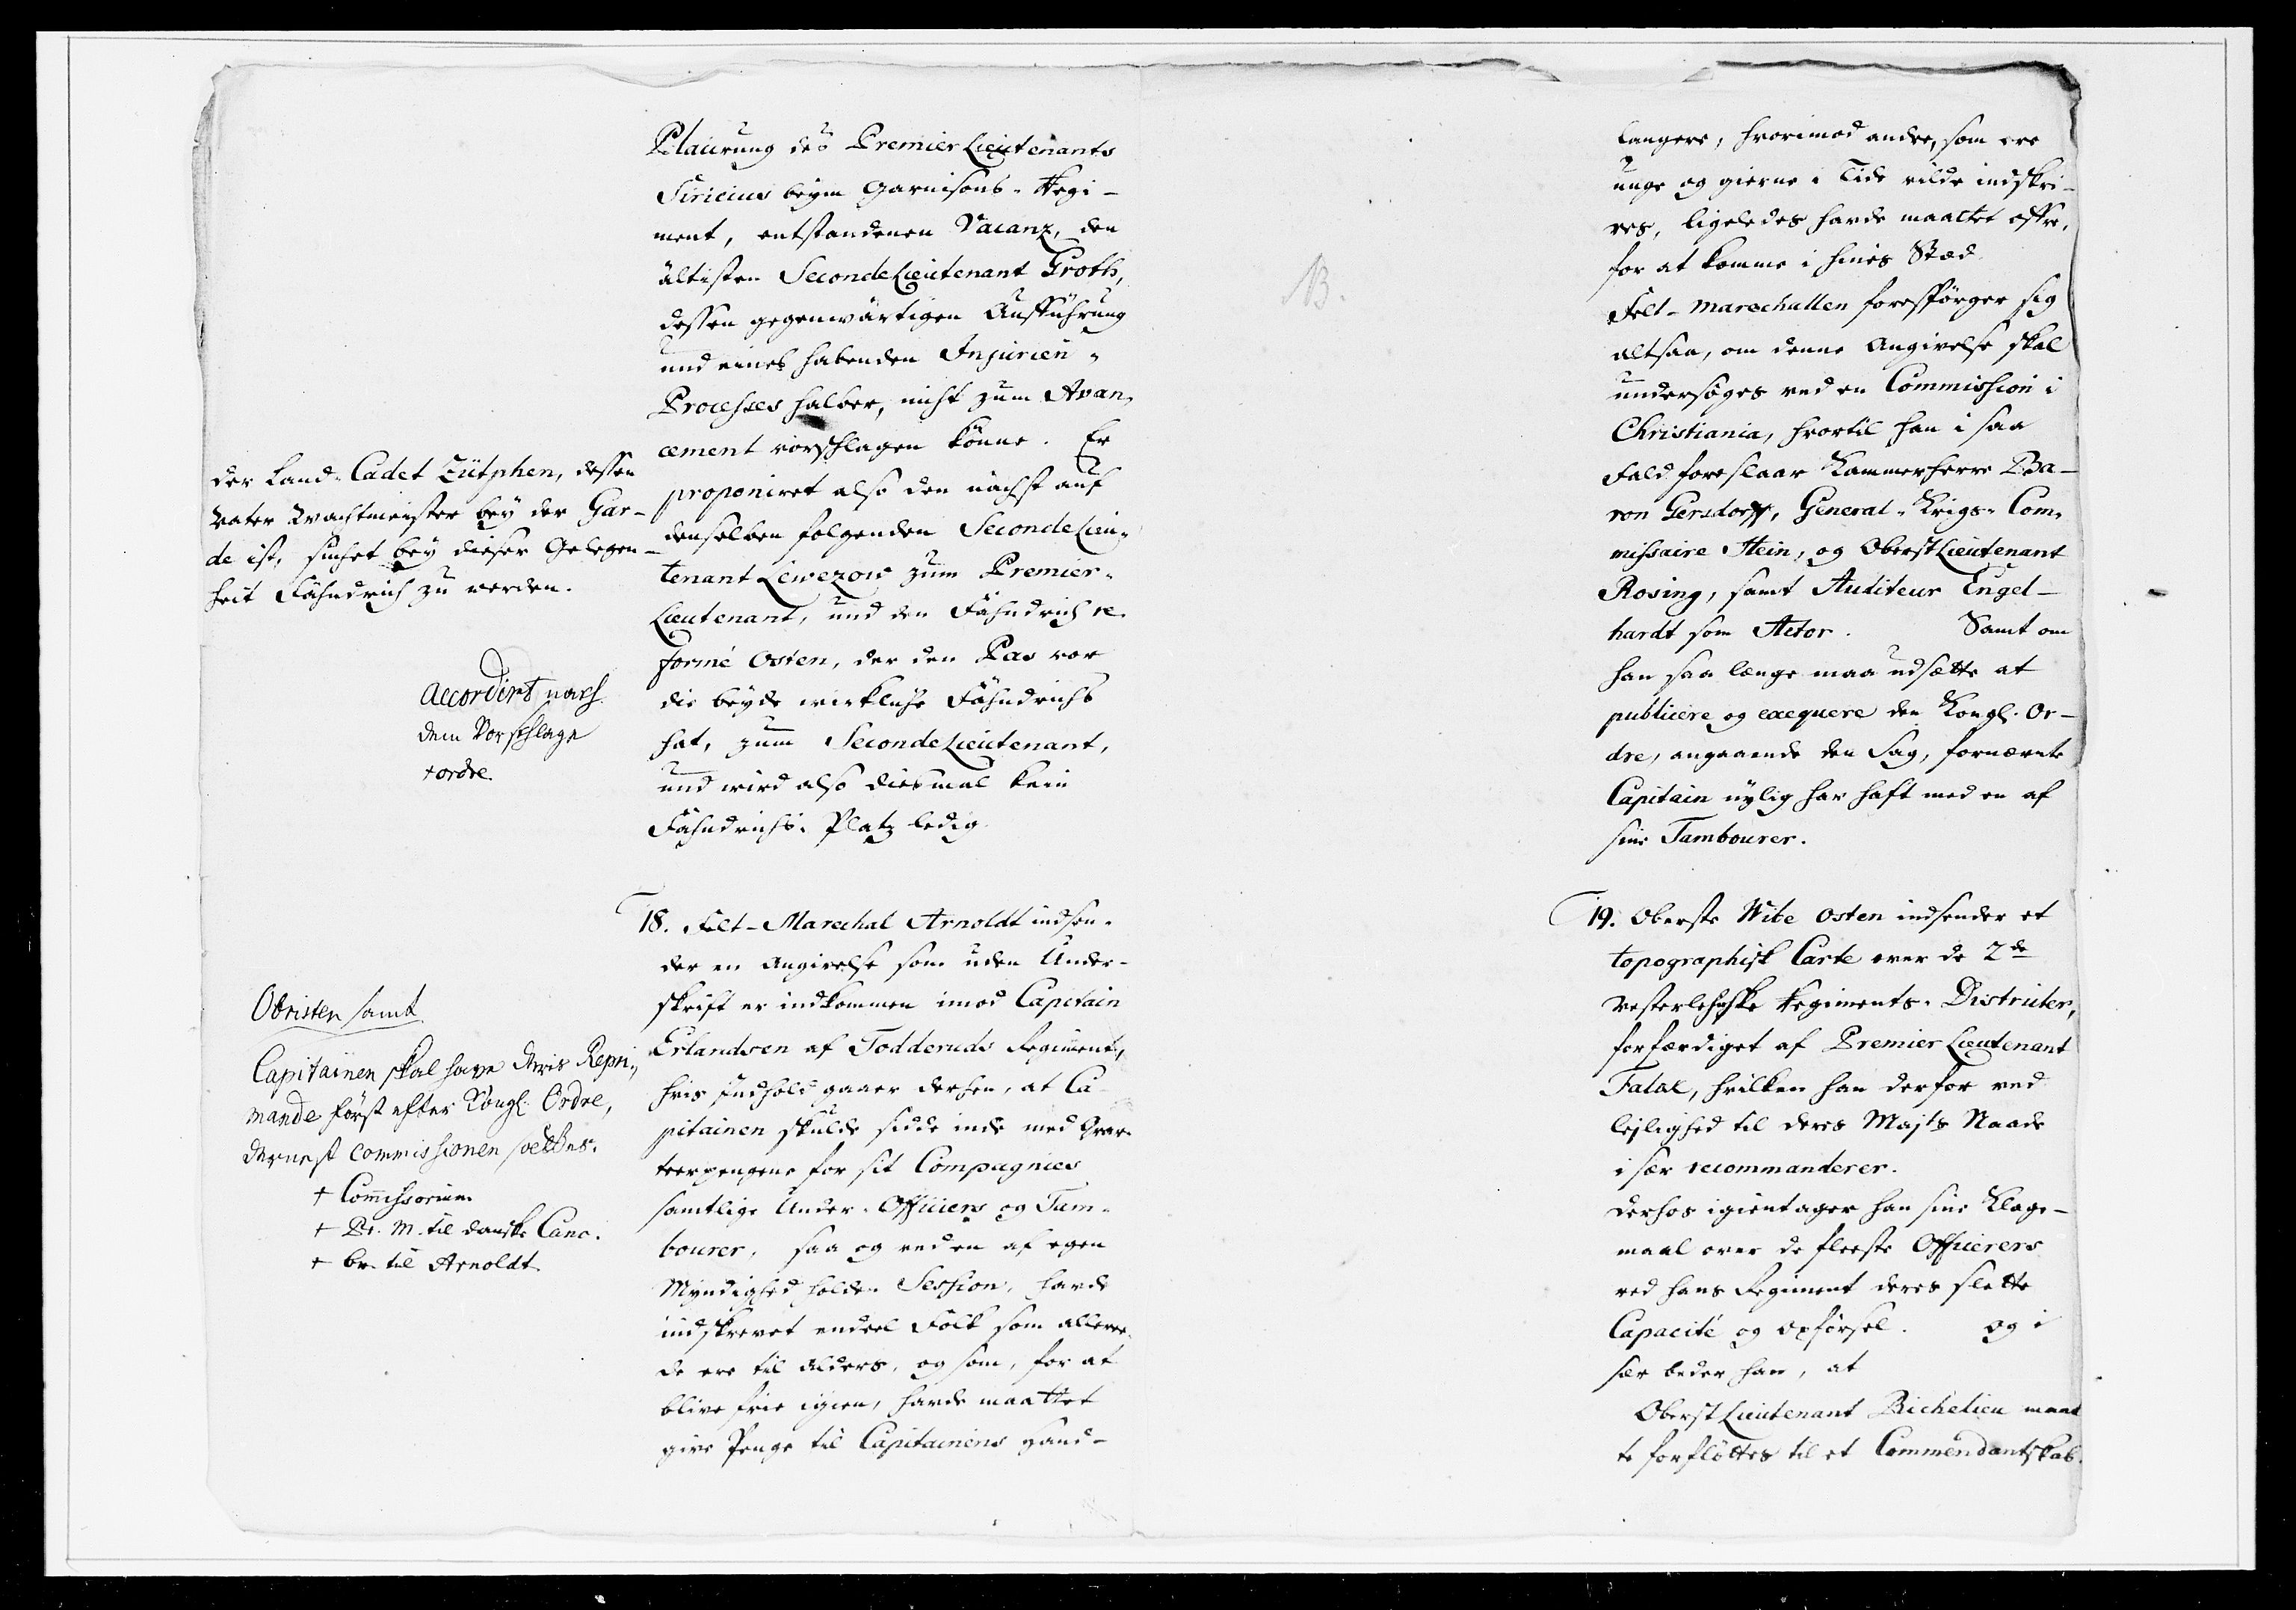 Placirung des Premier Lieutenants
Siricius beym Garnisons-Regi-
ment, entstandenen Vacanz, den
ältisten Seconde Lieutenant Groth,
dessen gegenwärtigen Aufführung
und eines habenden Injurien-
Processes halber, nicht zum Avan-
cement vorschlagen könne. Er
proponiret also den nächst auf
denselben folgenden Seconde Lieu-
tenant Lewezow zum Premier-
Lieutenant, und den Fähndrich re-
formé Osten, der den Pas vor
die beyde wirkliche Fähndrichs
hat, zum Seconde Lieutenant,
und wird also diesmal kein
Fähndrichs-Platz ledig.
der Land-Cadet Zütphen, dessen
Vater Wachtmeister bey der Gar-
de ist, suchet bey dieser Gelegen-
heit Fähndrich zu werden.
Accordirt nach
dem Vorschlage
+ ordre.
18. Felt-Marechal Arnoldt indsen-
der en Angivelse som uden Under-
skrift er indkommen imod Capitain
Erlandsen af Todderuds Regiment,
hvis Indhold gaaer derhen, at Ca-
pitainen skulde sidde inde med Qvar-
teerpengene for sit Compagnies
samtlige Under-Officiers og Tam-
bourer, saa og ved en af egen
Myndighed holden Session, havde
indskrevet endeel Folk som allere-
de ere til Alders, og som, for at
blive frie igien, havde maattet
give Penge til Capitainens Hand-
Obristen samt
Capitainen skal have deris Repri-
mande först efter Kongl. Ordre,
dernest Commissionen settes.
+ Commissorium
+ Pr. M. til danske Canc.
+ br. til Arnoldt.
B.
langere, hvorimod andre, som ere
unge og gierne i Tide vilde indskri-
ves, ligeledes havde maattet offre,
for at komme i hines Stæd.
Felt-Marechallen forespörger sig
altsaa, om denne Angivelse skal
undersöges ved en Commission i
Christiania, hvortil han i saa
Fald foreslaar Kammerherre Ba-
ron Gersdorff, General-Krigs-Com-
missaire Stein, og Oberst Lieutenant
Rosing, samt Auditeur Engel-
hardt som Actor. Samt om
han saa længe maa udsætte at
publicere og exequere den Kongl. Or-
dre, angaaende den Sag, fornævnte
Capitain nylig har haft med en af
sine Tambourer.
19. Oberste Wibe Osten indsender et
topographisk Carte over de 2de
Vesterlehnske Regiments-Districter,
forfærdiget af Premier Lieutenant
Fatae, hvilken han derfor ved
lejlighed til deres Majts Naade
i sær recommanderer.
Derhos igientager han sine Klage-
maal over de fleeste Officerers
ved hans Regiment deres slette
Capacité og Opförsel. Og i
sær beder han, at
Oberst Lieutenant Richelieu maat
te forflöttes til et Commendantskab.